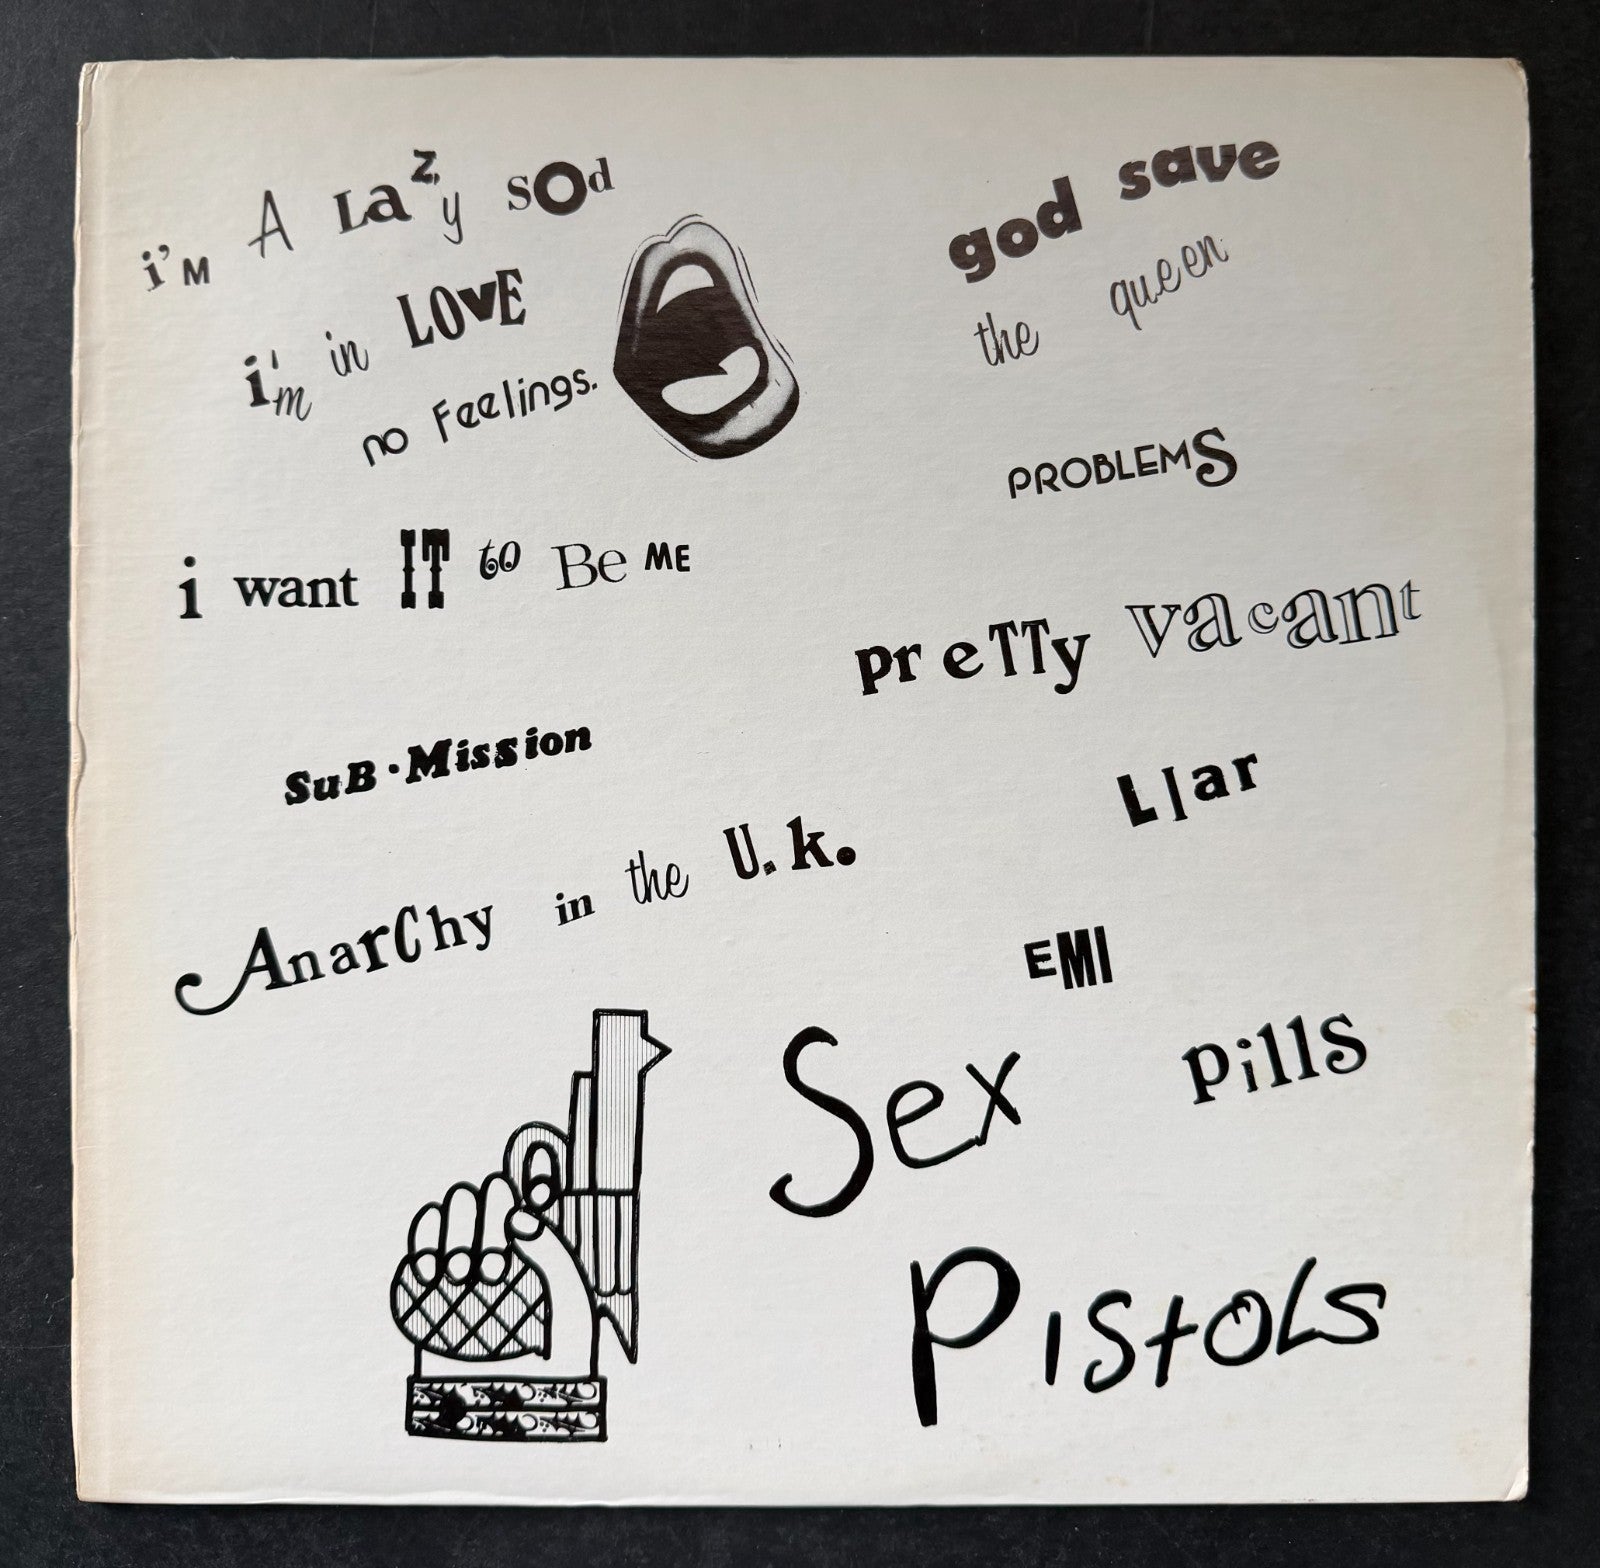 i'M A LazY SOd
i'm in LOvE
no Feelings.
i want IT to Be ME
SuB·Mission
AnarChy in the U.k.
god save
the queen
PROBLEMS
preTTy vacant
LIar
EMI
Sex pills
PIStOLS